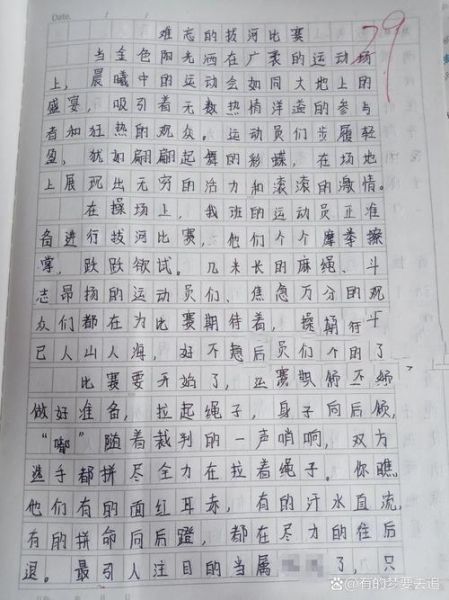 Date.
79
难忘的拔河比赛
当金色阳光洒在广袤的运动场
上，晨曦中的运动会如同大地上的
盛宴，吸引着无数热情洋溢的参与
者和狂热的观众。运动员们步履轻
盈，犹如翩翩起舞的彩蝶，在场地
上展现出无穷的活力和滚滚的激情。
在操场上，我班的运动员正准
备进行拔河比赛，他们个个摩拳擦
掌，跃跃欲试。几米长的麻绳、斗
志昂扬的运动员们、焦急万分的观
众们都在为比赛期待着，操场
已人山人海，好不 后员们个的了
比赛要开始了，
做好准备，拉起绳子，身子向后倾，
“嘟”随着裁判的一声哨响，双方
选手都拼尽全力在拉着绳子。你瞧
他们有的面红耳赤，有的汗水直流，
有的拼命向后蹬，都在尽力的往后
退。最引人注目的当属 了，只
知乎 @有的梦要去追